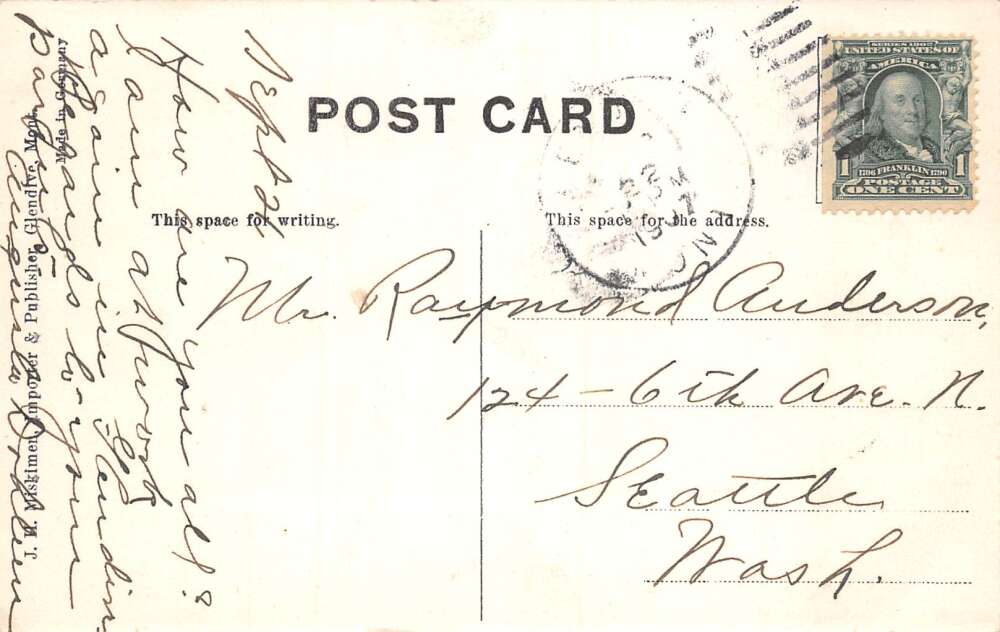 POST CARD
This space for writing.
This space for the address.
SERIES 1902
UNITED STATES OF
AMERICA
1 1706 FRANKLIN 1790 1
POSTAGE
ONE CENT
22
M
1907
MONT
Mr. Raymond Anderson,
124 - 6th Ave. N.
Seattle
Wash.
Sept 21
How are you all?
I am at work
again in Glendive
Regards to you
Augusta
J. H. Miskimen, Importer & Publisher, Glendive, Mont.
Made in Germany